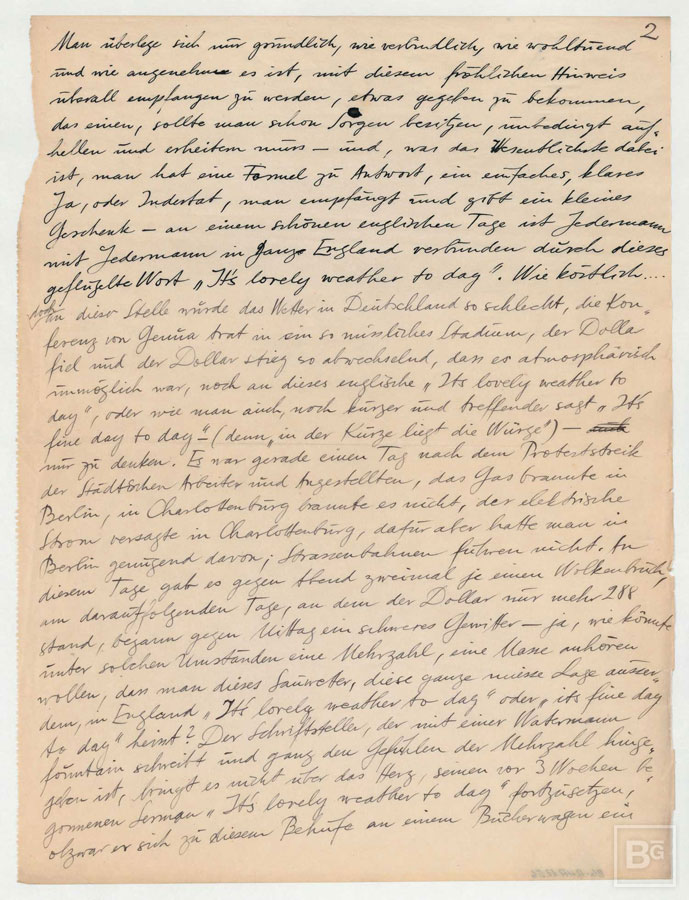 2
Man überlege sich nur gründlich, wie verbindlich, wie wohltuend
und wie angenehm es ist, mit diesem fröhlichen Hinweis
überall empfangen zu werden, etwas gegeben zu bekommen,
das einen, sollte man schon Sorgen besitzen, unbedingt auf-
hellen und erheitern muss – und, was das Wesentlichste dabei
ist, man hat eine Formel zu Antwort, ein einfaches, klares
Ja, oder Indertat, man empfängt und gibt ein kleines
Geschenk – an einem schönen englischen Tage ist Jedermann
mit Jedermann in ganz England verbunden durch dieses
geflügelte Wort „It's lovely weather to day". Wie köstlich....
doch
An dieser Stelle wurde das Wetter in Deutschland so schlecht, die Kon-
ferenz von Genua trat in ein so missliches Stadium, der Dollar
fiel und der Dollar stieg so abwechselnd, dass es atmosphärisch
unmöglich war, noch an dieses englische „It's lovely weather to
day", oder wie man auch, noch kürzer und treffender sagt „It's
fine day to day" – (denn „in der Kürze liegt die Würze") –
nur zu denken. Es war gerade einen Tag nach dem Proteststreik
der Städtischen Arbeiter und Angestellten, das Gas brannte in
Berlin, in Charlottenburg brannte es nicht, der elektrische
Strom versagte in Charlottenburg, dafür aber hatte man in
Berlin genügend davon; Strassenbahnen fuhren nicht. An
diesem Tage gab es gegen Abend zweimal je einen Wolkenbruch,
am darauffolgenden Tage, an dem der Dollar nur mehr 288
stand, begann gegen Mittag ein schweres Gewitter – ja, wie könnte
unter solchen Umständen eine Mehrzahl, eine Masse anhören
wollen, dass man dieses Sauweter, diese ganze miese Lage ausser-
dem, in England „It's lovely weather to day" oder „its fine day
to day" heisst? Der Schriftsteller, der mit einer Watermann
fountain schreibt und ganz den Gefühlen der Mehrzahl hinge-
geben ist, bringt es nicht über das Herz, seinen vor 3 Wochen be-
gonnenen Sermon „It's lovely weather to day" fortzusetzen,
obzwar er sich zu diesem Behufe an einem Bücherwagen ein
BG